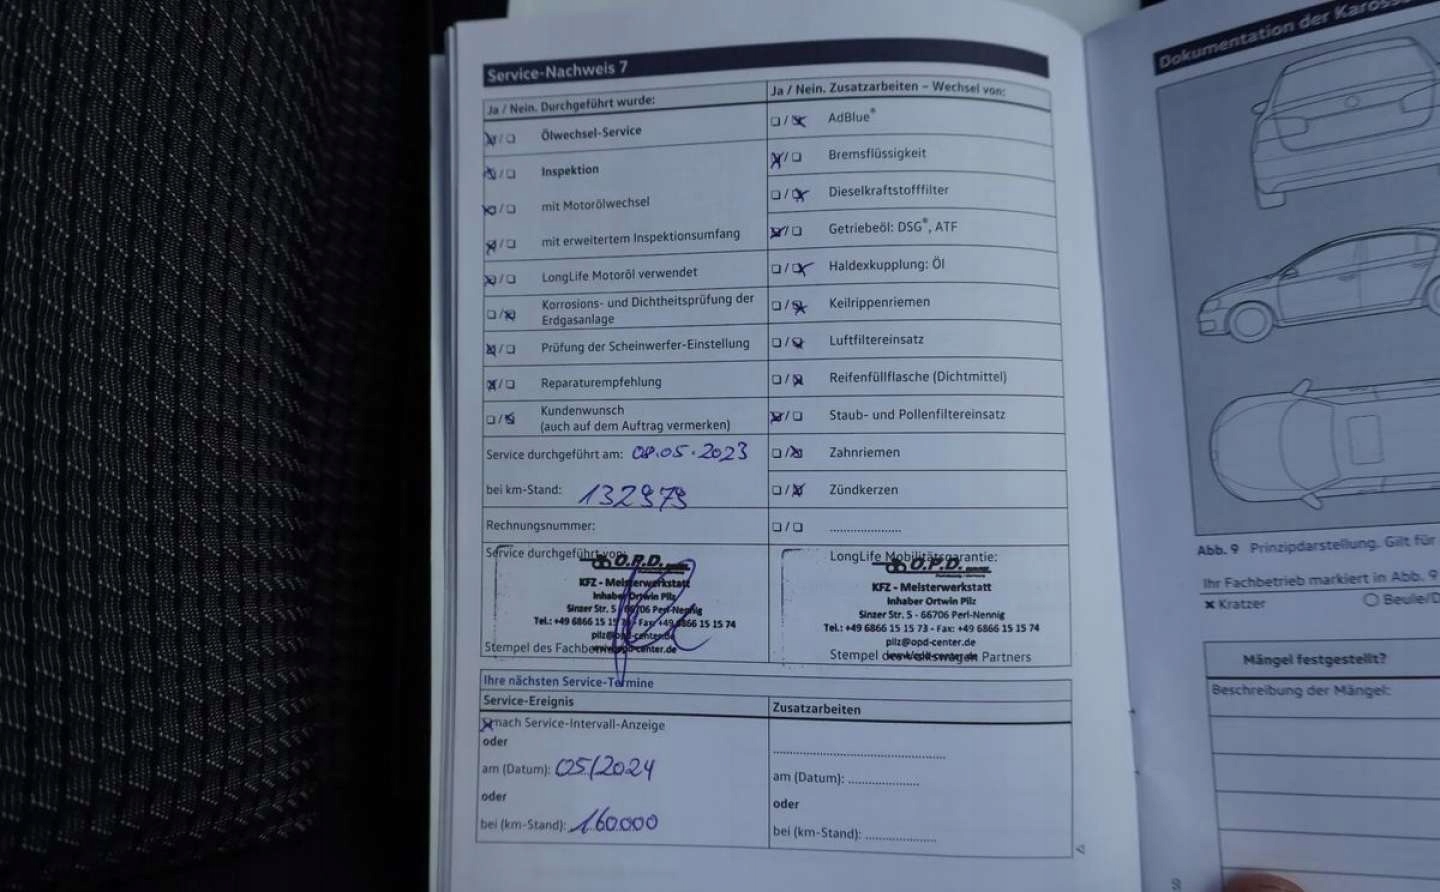 Service-Nachweis 7
Ja / Nein. Durchgeführt wurde:
Ölwechsel-Service
Inspektion
mit Motorölwechsel
mit erweitertem Inspektionsumfang
LongLife Motoröl verwendet
Korrosions- und Dichtheitsprüfung der
Erdgasanlage
Prüfung der Scheinwerfer-Einstellung
Reparaturempfehlung
Kundenwunsch
(auch auf dem Auftrag vermerken)
Service durchgeführt am: 08.05.2023
bei km-Stand: 132979
Rechnungsnummer:
Service durchgeführt von:
O.P.D.
KFZ - Meisterwerkstatt
Inhaber Ortwin Pilz
Sinzer Str. 5 - 66706 Perl-Nennig
Tel.: +49 6866 15 15 73 - Fax: +49 6866 15 15 74
pilz@opd-center.de
www.opd-center.de
Stempel des Fachbetriebs
Ja / Nein. Zusatzarbeiten – Wechsel von:
AdBlue®
Bremsflüssigkeit
Dieselkraftstofffilter
Getriebeöl: DSG®, ATF
Haldexkupplung: Öl
Keilrippenriemen
Luftfiltereinsatz
Reifenfüllflasche (Dichtmittel)
Staub- und Pollenfiltereinsatz
Zahnriemen
Zündkerzen
.....................
LongLife Mobilitätsgarantie:
O.P.D.
KFZ - Meisterwerkstatt
Inhaber Ortwin Pilz
Sinzer Str. 5 - 66706 Perl-Nennig
Tel.: +49 6866 15 15 73 - Fax: +49 6866 15 15 74
pilz@opd-center.de
Stempel des Volkswagen Partners
Ihre nächsten Service-Termine
Service-Ereignis
nach Service-Intervall-Anzeige
oder
am (Datum): 05/2024
oder
bei (km-Stand): 160000
Zusatzarbeiten
am (Datum): ...................
oder
bei (km-Stand): ...................
Dokumentation der
Abb. 9 Prinzipdarstellung. Gilt für
Ihr Fachbetrieb markiert in Abb. 9
× Kratzer
Mängel festgestellt?
Beschreibung der Mängel: